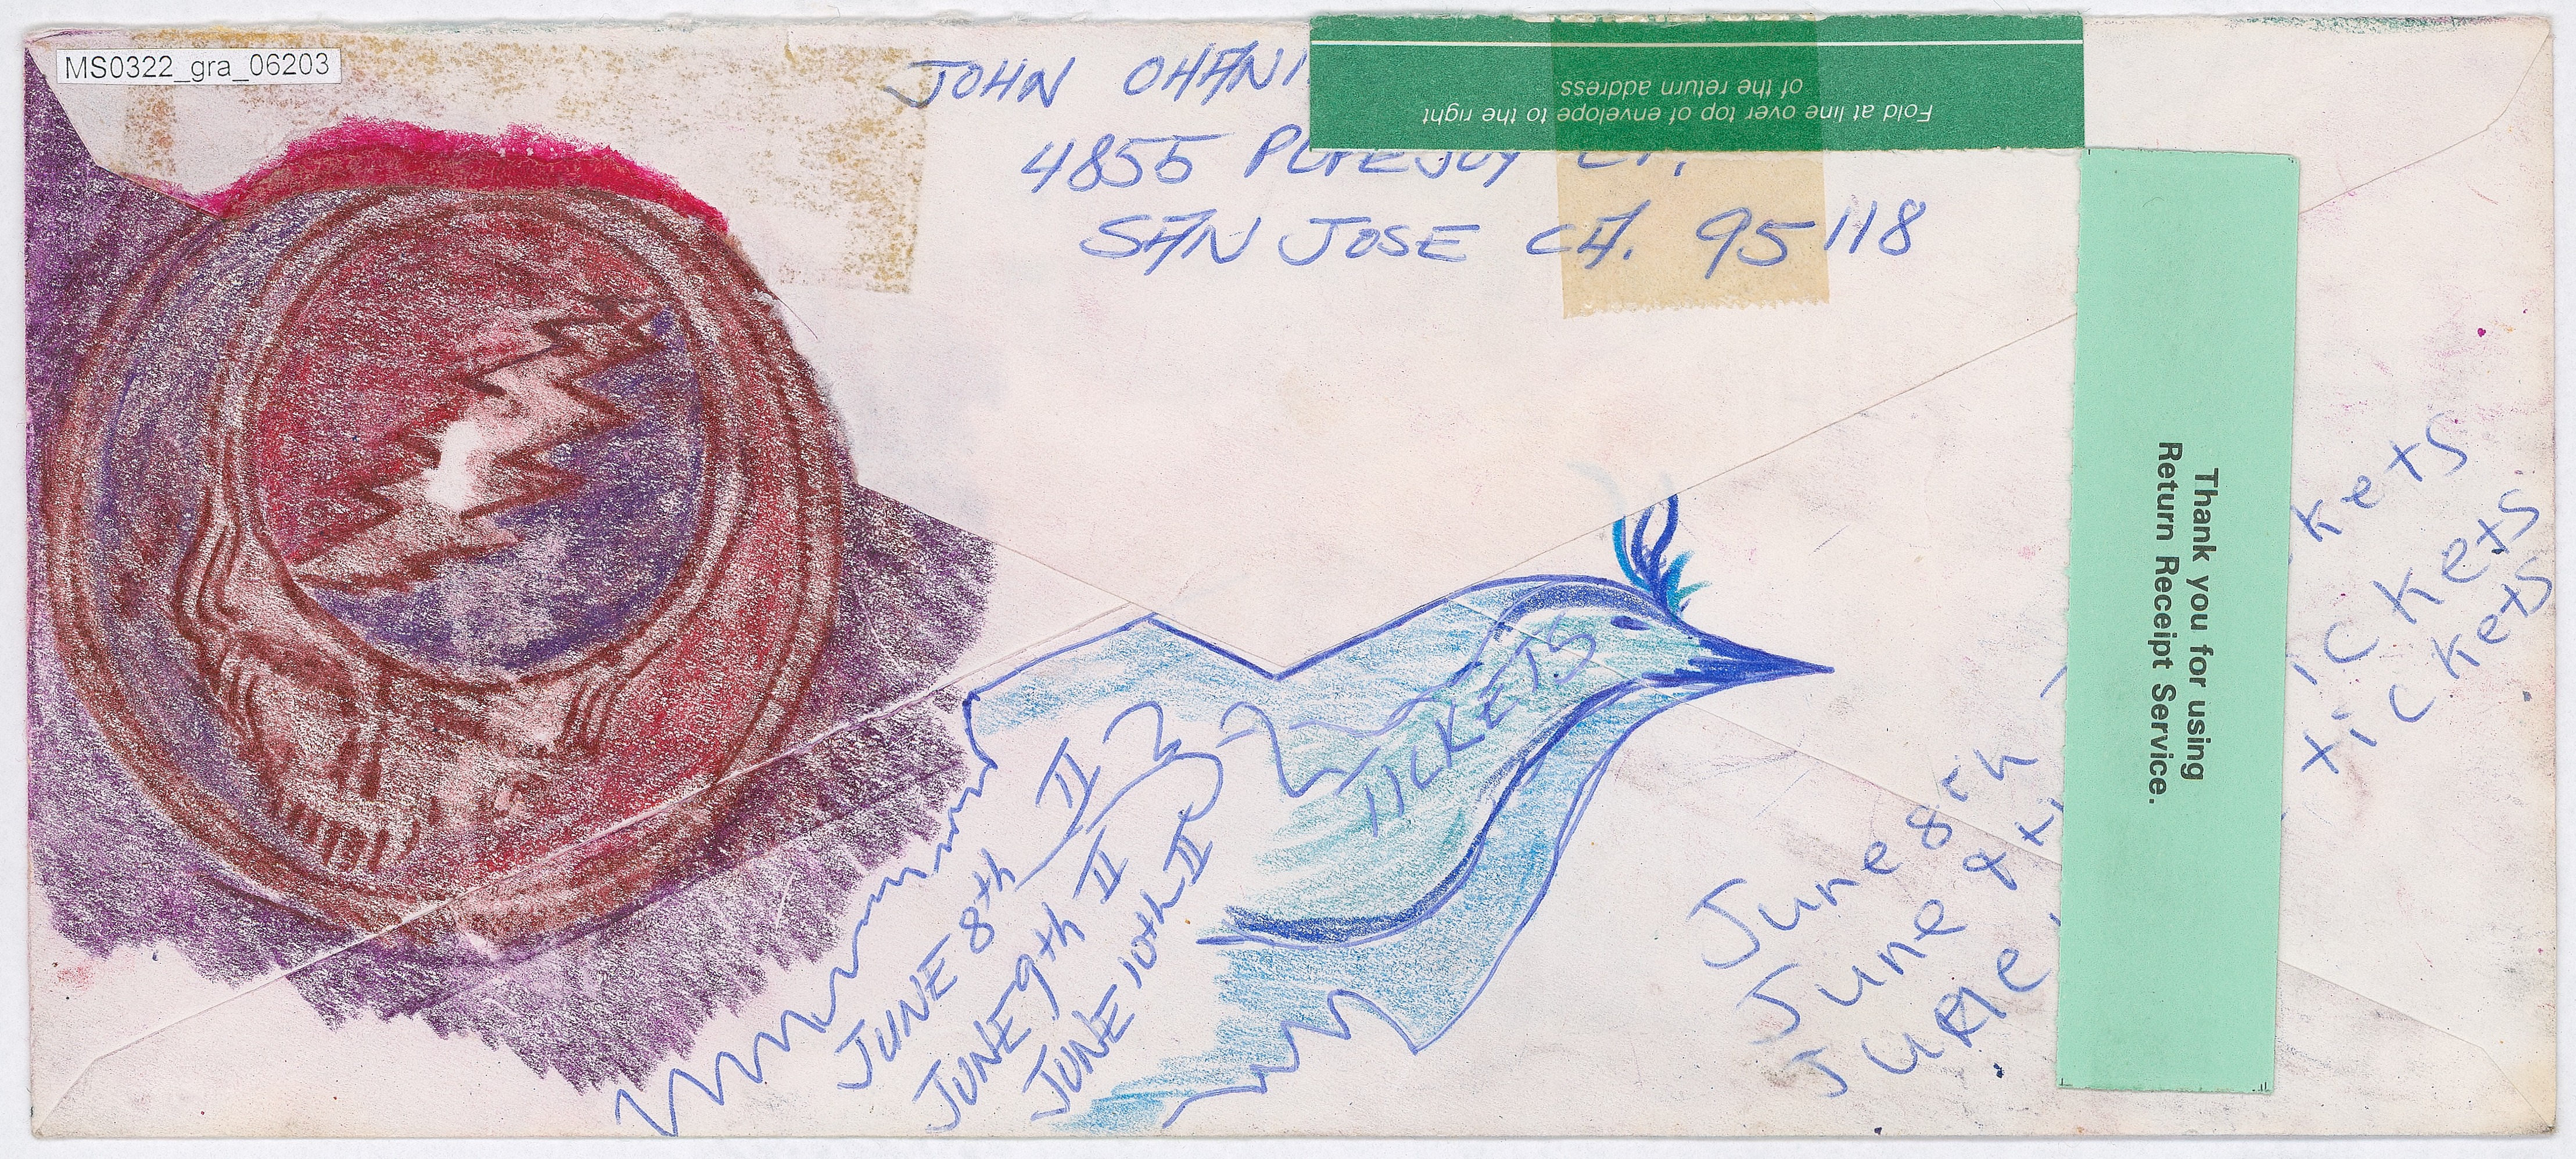 MS0322_gra_06203
JOHN OHANI
Fold at line over top of envelope to the right
of the return address.
4855 CT.
SAN JOSE CA. 95118
Thank you for using
Return Receipt Service.
TICKETS
JUNE 8th II
JUNE 9th II
JUNE 10th II
June 8th
June 9th
June
kets
ickets
tickets